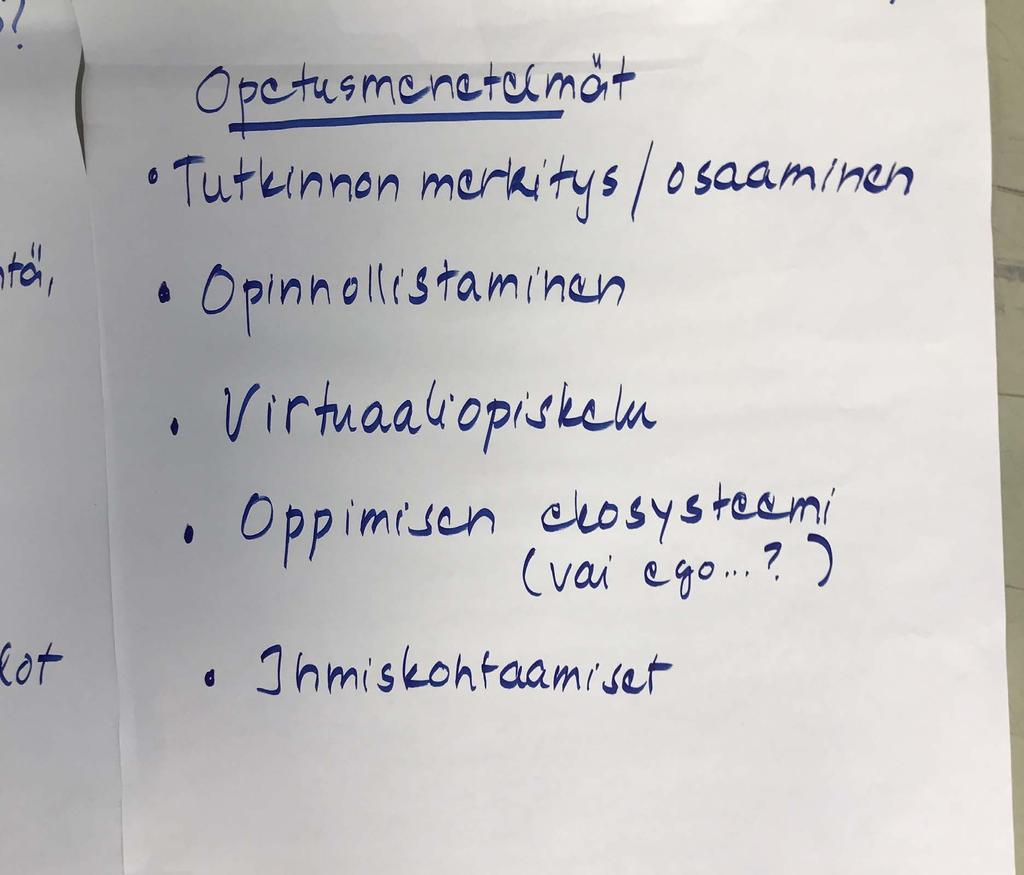 Opetusmenetelmät
• Tutkinnon merkitys / osaaminen
• Opinnollistaminen
• Virtuaaliopiskelu
• Oppimisen ekosysteemi
(vai ego...?)
• Ihmiskohtaamiset